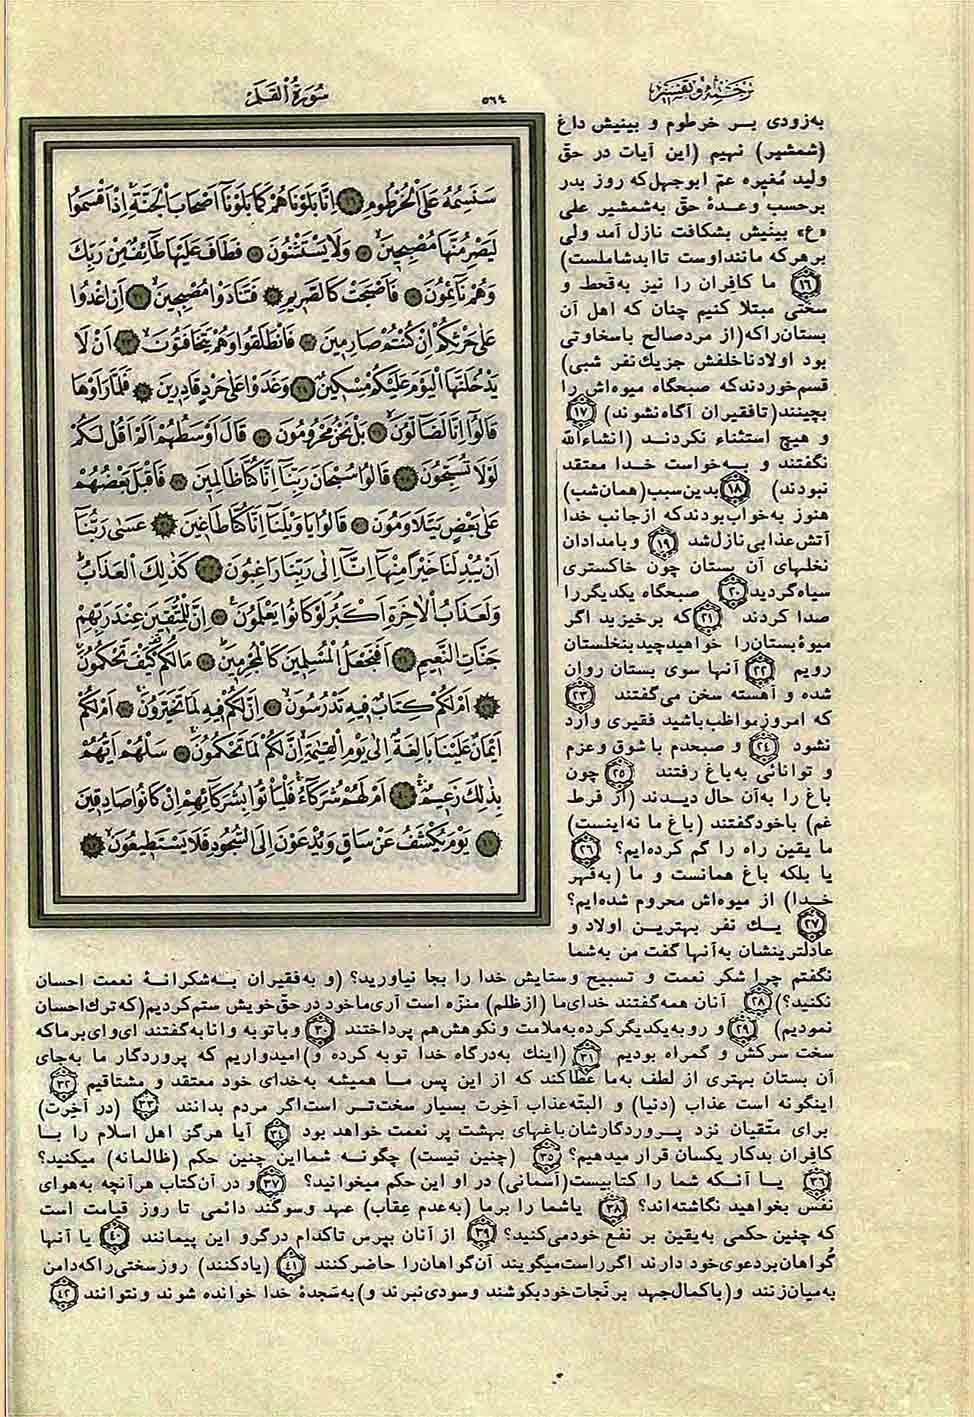 ترجمه و تفسیر
٥٦٤
سورة القلم
سَنَسِمُهُ عَلَى الْخُرْطُومِ ١٦ اِنَّا بَلَوْنَاهُمْ كَمَا بَلَوْنَا اَصْحَابَ الْجَنَّةِ اِذْ اَقْسَمُوا
لَيَصْرِمُنَّهَا مُصْبِحِينَ ١٧ وَلَا يَسْتَثْنُونَ ١٨ فَطَافَ عَلَيْهَا طَائِفٌ مِنْ رَبِّكَ
وَهُمْ نَائِمُونَ ١٩ فَاَصْبَحَتْ كَالصَّرِيمِ ٢٠ فَتَنَادَوْا مُصْبِحِينَ ٢١ اَنِ اغْدُوا
عَلٰى حَرْثِكُمْ اِنْ كُنْتُمْ صَارِمِينَ ٢٢ فَانْطَلَقُوا وَهُمْ يَتَخَافَتُونَ ٢٣ اَنْ لَا
يَدْخُلَنَّهَا الْيَوْمَ عَلَيْكُمْ مِسْكِينٌ ٢٤ وَغَدَوْا عَلٰى حَرْدٍ قَادِرِينَ ٢٥ فَلَمَّا رَاَوْهَا
قَالُوا اِنَّا لَضَالُّونَ ٢٦ بَلْ نَحْنُ مَحْرُومُونَ ٢٧ قَالَ اَوْسَطُهُمْ اَلَمْ اَقُلْ لَكُمْ
لَوْلَا تُسَبِّحُونَ ٢٨ قَالُوا سُبْحَانَ رَبِّنَا اِنَّا كُنَّا ظَالِمِينَ ٢٩ فَاَقْبَلَ بَعْضُهُمْ
عَلٰى بَعْضٍ يَتَلَاوَمُونَ ٣٠ قَالُوا يَا وَيْلَنَا اِنَّا كُنَّا طَاغِينَ ٣١ عَسٰى رَبُّنَا
اَنْ يُبْدِلَنَا خَيْرًا مِنْهَا اِنَّا اِلٰى رَبِّنَا رَاغِبُونَ ٣٢ كَذٰلِكَ الْعَذَابُ
وَلَعَذَابُ الْاٰخِرَةِ اَكْبَرُ لَوْ كَانُوا يَعْلَمُونَ ٣٣ اِنَّ لِلْمُتَّقِينَ عِنْدَ رَبِّهِمْ
جَنَّاتِ النَّعِيمِ ٣٤ اَفَنَجْعَلُ الْمُسْلِمِينَ كَالْمُجْرِمِينَ ٣٥ مَا لَكُمْ كَيْفَ تَحْكُمُونَ
٣٦ اَمْ لَكُمْ كِتَابٌ فِيهِ تَدْرُسُونَ ٣٧ اِنَّ لَكُمْ فِيهِ لَمَا تَخَيَّرُونَ ٣٨ اَمْ لَكُمْ
اَيْمَانٌ عَلَيْنَا بَالِغَةٌ اِلٰى يَوْمِ الْقِيٰمَةِ اِنَّ لَكُمْ لَمَا تَحْكُمُونَ ٣٩ سَلْهُمْ اَيُّهُمْ
بِذٰلِكَ زَعِيمٌ ٤٠ اَمْ لَهُمْ شُرَكَاءُ فَلْيَاْتُوا بِشُرَكَائِهِمْ اِنْ كَانُوا صَادِقِينَ
٤١ يَوْمَ يُكْشَفُ عَنْ سَاقٍ وَيُدْعَوْنَ اِلَى السُّجُودِ فَلَا يَسْتَطِيعُونَ ٤٢
به‌زودی بر خرطوم و بینیش داغ
(شمشیر) نهیم (این آیات در حقّ
ولید مُغیره عمّ ابوجهل که روز بدر
برحسب وعدهٔ حقّ به‌شمشیر علی
«ع» بینیش بشکافت نازل آمد ولی
برهرکه ماننداوست تاابدشاملست)
١٦ ما کافران را نیز به‌قحط و
سختی مبتلا کنیم چنان که اهل آن
بستان راکه(از مردصالح باسخاوتی
بود اولادناخلفش جزیك نفر شبی)
قسم‌خوردندکه صبحگاه میوه‌اش‌را
بچینند(تافقیران آگاه‌نشوند) ١٧
و هیچ استثناء نکردند (انشاءالله
نگفتند و به‌خواست خدا معتقد
نبودند) ١٨ بدین‌سبب(همان‌شب)
هنوز به‌خواب‌بودندکه ازجانب خدا
آتش‌عذابی‌نازل‌شد ١٩ وبامدادان
نخلهای آن بستان چون خاکستری
سیاه‌گردید ٢٠ صبحگاه یکدیگررا
صدا کردند ٢١ که برخیزید اگر
میوهٔ‌بستان‌را خواهیدچیدبنخلستان
رویم ٢٢ آنها سوی بستان روان
شده و آهسته سخن می‌گفتند ٢٣
که امروزمواظب‌باشید فقیری وارد
نشود ٢٤ و صبحدم با شوق وعزم
و توانائی به‌باغ رفتند ٢٥ چون
باغ را به‌آن حال دیدند (از فرط
غم) باخودگفتند (باغ ما نه‌اینست)
ما یقین راه را گم کرده‌ایم؟ ٢٦
یا بلکه باغ همانست و ما (به‌قهر
خدا) از میوه‌اش محروم شده‌ایم؟
٢٧ یك نفر بهترین اولاد و
عادلترینشان به‌آنها گفت من به‌شما
نگفتم چرا شکر نعمت و تسبیح وستایش خدا را بجا نیاورید؟ (و به‌فقیران به‌شکرانهٔ نعمت احسان
نکنید؟) ٢٨ آنان همه‌گفتند خدای‌ما (ازظلم) منزّه است آری‌ماخود درحقّ‌خویش ستم‌کردیم(که ترك‌احسان
نمودیم) ٢٩ و روبه‌یکدیگرکرده‌به‌ملامت ونکوهش‌هم پرداختند ٣٠ وباتوبه وانابه‌گفتند ای‌وای‌برماکه
سخت سرکش و گمراه بودیم ٣١ (اینك به‌درگاه خدا توبه کرده و)امیدواریم که پروردگار ما به‌جای
آن بستان بهتری از لطف به‌ما عطاکند که از این پس ما همیشه به‌خدای خود معتقد و مشتاقیم ٣٢
اینگونه است عذاب (دنیا) و البتّه‌عذاب آخرت بسیار سخت‌تر است‌اگر مردم بدانند ٣٣ (در آخرت)
برای متّقیان نزد پروردگارشان‌باغهای بهشت پر نعمت خواهد بود ٣٤ آیا هرگز اهل اسلام را با
کافران بدکار یکسان قرار میدهیم؟ ٣٥ (چنین نیست) چگونه شمااین چنین حکم (ظالمانه) میکنید؟
٣٦ یا آنکه شما را کتابیست(آسمانی) در او این حکم میخوانید؟ ٣٧ و در آن‌کتاب هرآنچه به‌هوای
نفس بخواهید نگاشته‌اند؟ ٣٨ یاشما را برما (به‌عدم عِقاب) عهد وسوگند دائمی تا روز قیامت است
که چنین حکمی به‌یقین بر نفع خودمی‌کنید؟ ٣٩ از آنان بپرس تاکدام درگرو این پیمانند ٤٠ یا آنها
گواهان‌بردعوی‌خود دارند اگرراست‌میگویند آن‌گواهان‌را حاضرکنند ٤١ (یادکنند) روزسختی‌راکه‌دامن
به‌میان‌زنند و(باکمال‌جهد برنجات‌خودبکوشند وسودی‌نبرند و)به‌سجدهٔ خدا خوانده شوند ونتوانند ٤٢